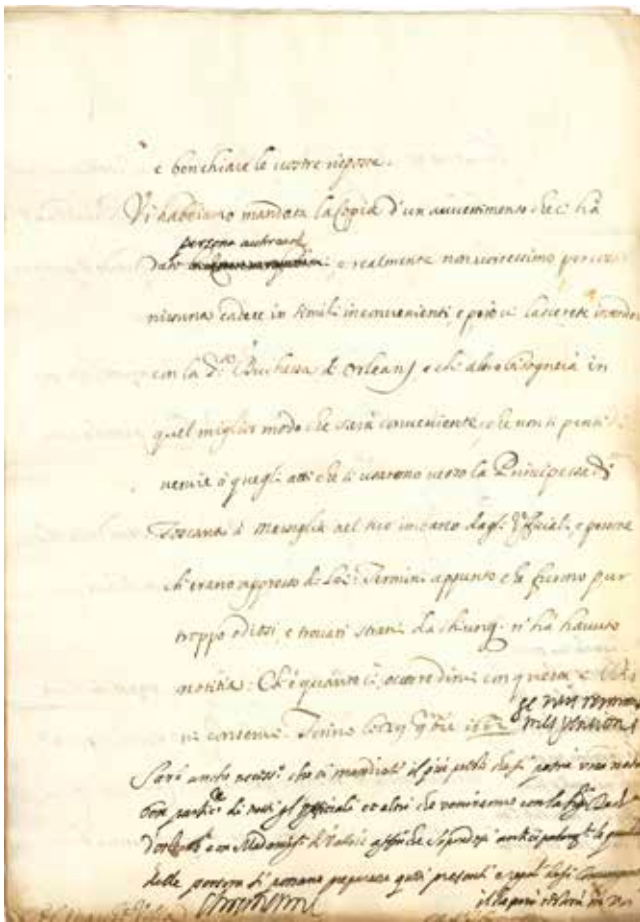 e ben chiare le vostre risposte.
Vi habbiamo mandata la Copia d'un avvertimento che ci hà
persona
dato e realmente non vorressimo per cosa
nissuna cadere in simili inconvenienti, e però vi lascerete intendere
con la Duchessa d'Orleans, e chi altro bisognerà in
quel miglior modo che sarà conveniente, che non si pensi di
venire à quegli atti che si usarono verso la Principessa di
Toscana à Marsiglia nel suo imbarco dagl' Ufficiali, e persone
ch'erano appresso di Lei. Termini appunto che furono pur
troppo odiosi, e trovati strani da chiunq. n'hà havuto
notitia. Ch'è quanto ci occorre dirvi con questa e
vi conservi. Torino li
Sarà anche necess.° che ci mandiate il più presto che si potrà una nota
ben partic.re di tutti gl'Officiali et altri che veniranno con la
d'Orleans e con Madamis.la di Valois affinche
delle persone si possano preparare quei presenti e regali